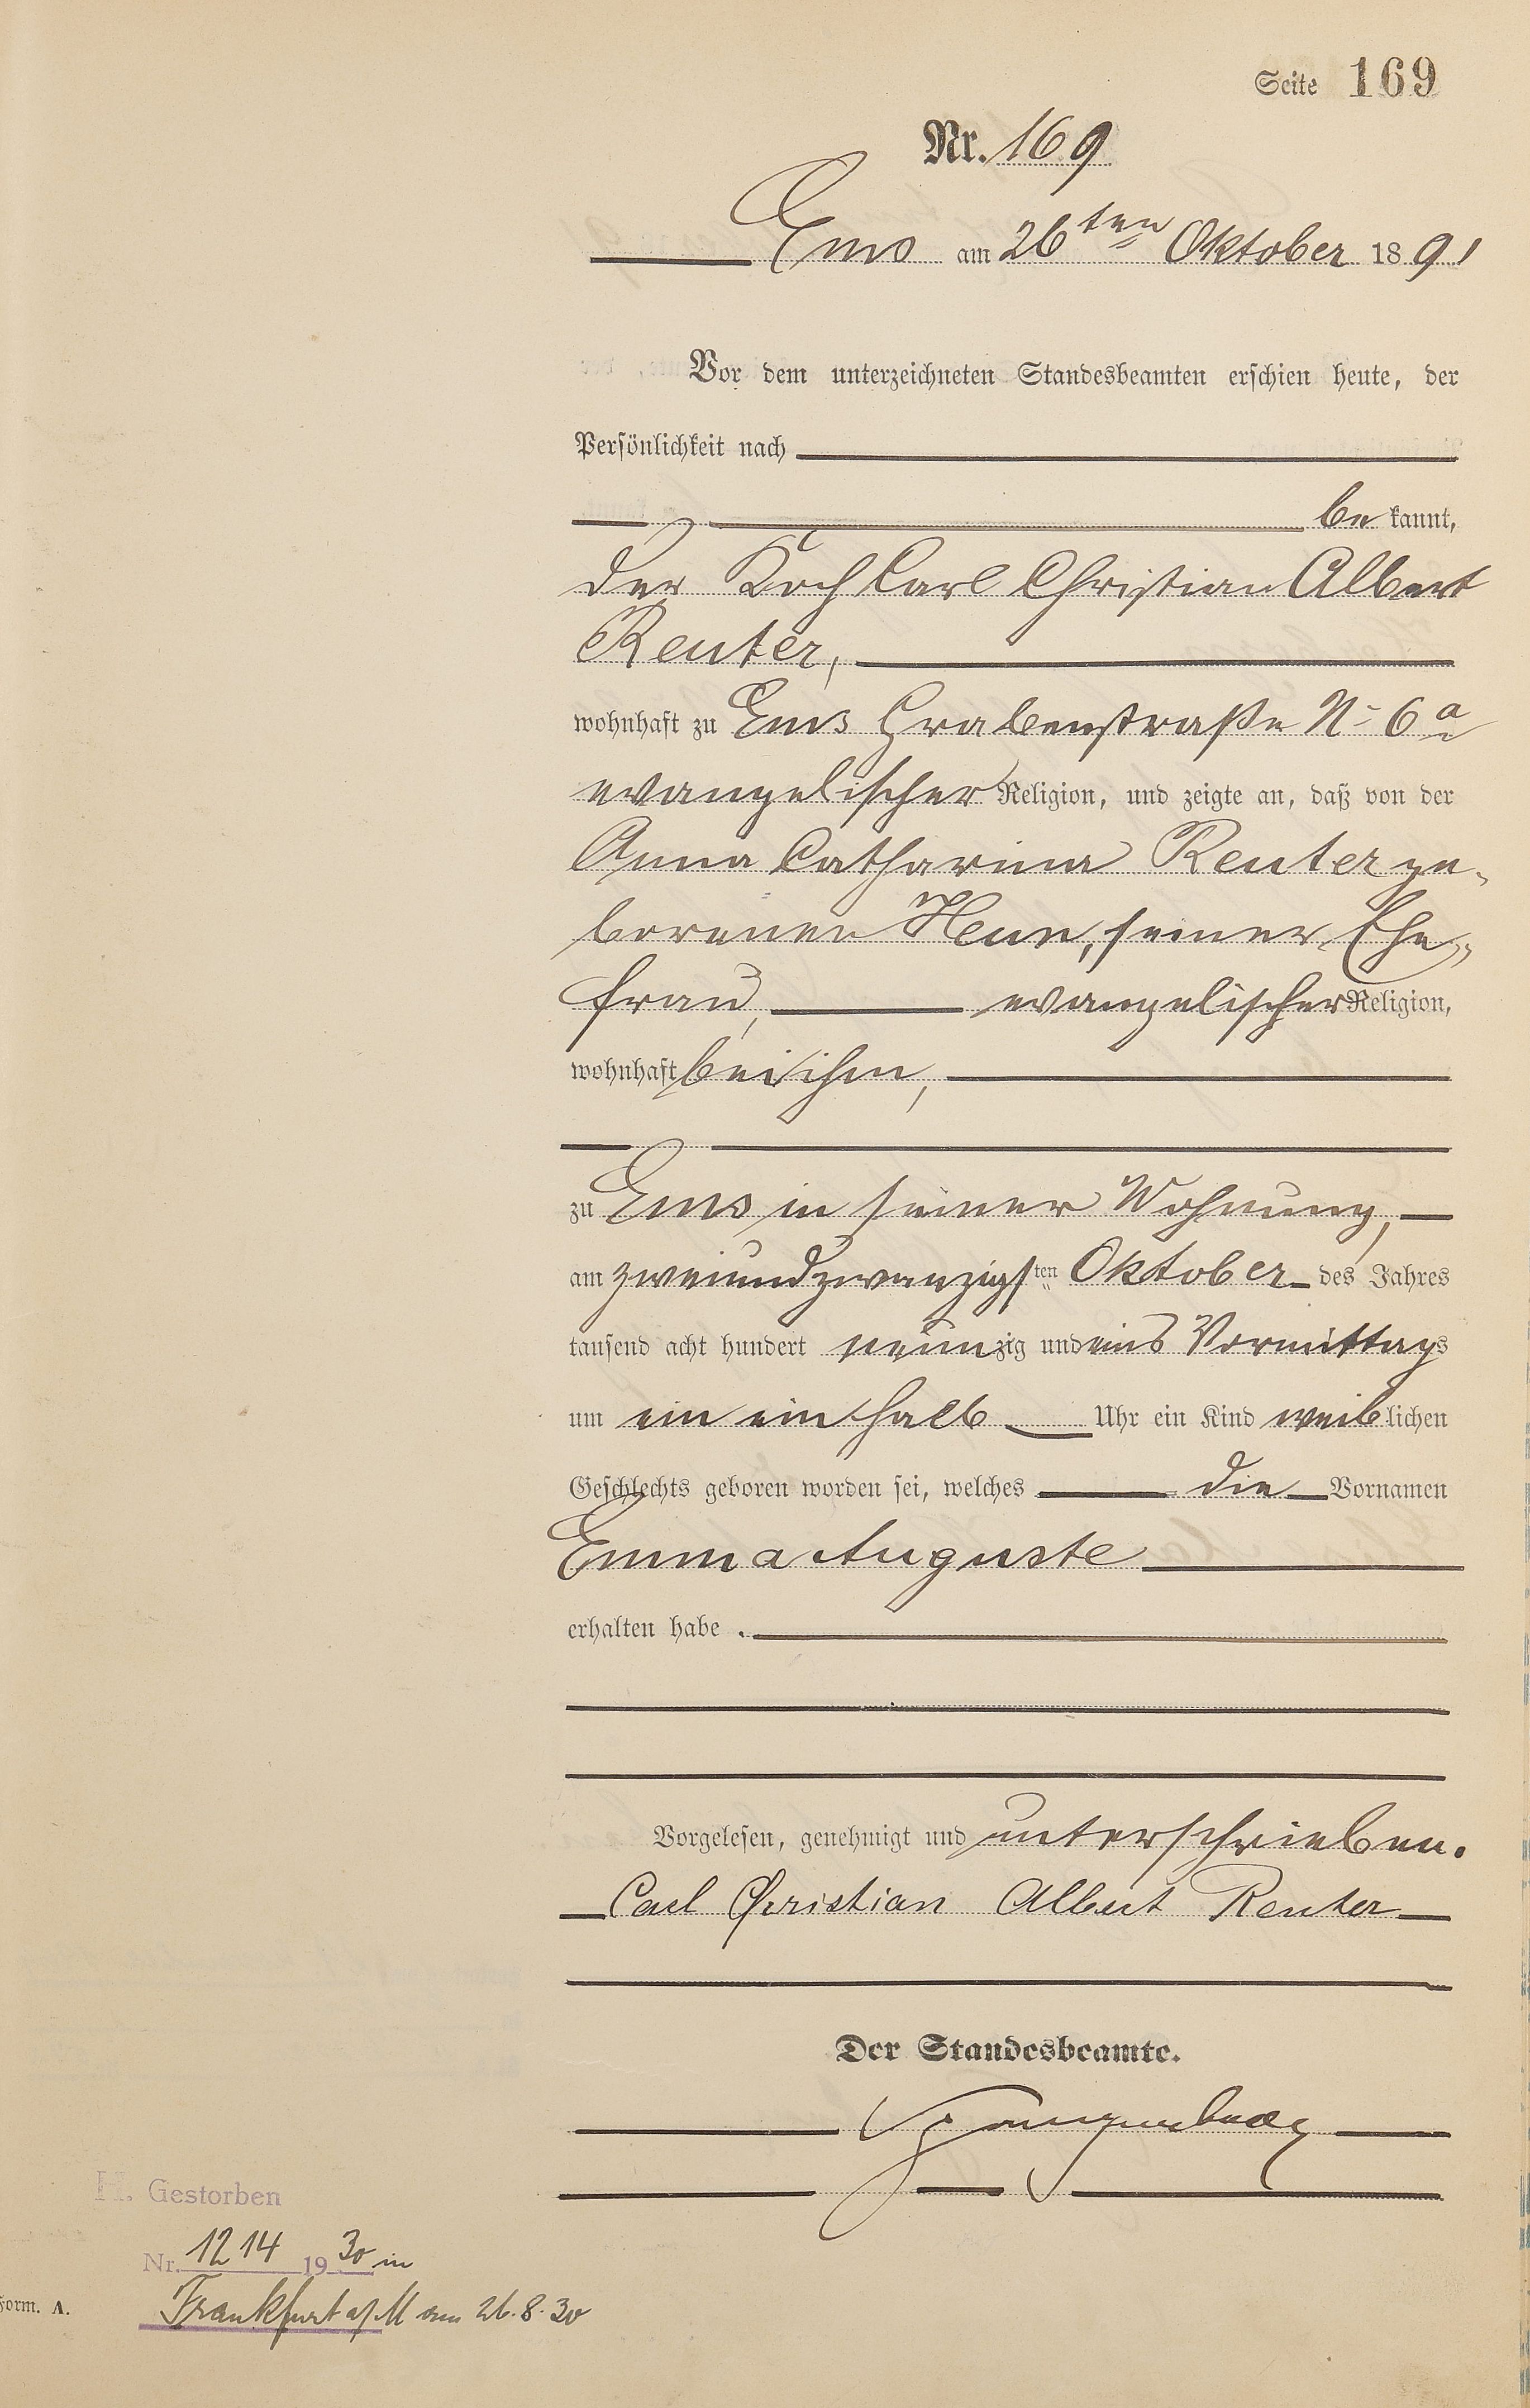 Seite 169
Nr. 169
Ems am 26ten Oktober 1891
Vor dem unterzeichneten Standesbeamten erschien heute, der
Persönlichkeit nach
be kannt,
der Koch Carl Christian Albert
Reuter,
wohnhaft zu Ems Grabenstraße No 6a
evangelischer Religion, und zeigte an, daß von der
Anna Catharina Reuter ge-
borenen, seiner Ehe-
frau, evangelischer Religion,
wohnhaft bei ihm,
zu Ems in seiner Wohnung,
am zweiundzwanzigsten Oktober des Jahres
tausend acht hundert neunzig und eins Vormittags
um ein ein halb Uhr ein Kind weiblichen
Geschlechts geboren worden sei, welches die Vornamen
Emma Auguste
erhalten habe.
Vorgelesen, genehmigt und unterschrieben.
Carl Christian Albert Reuter
Der Standesbeamte.
H. Gestorben
Nr. 1214 1930 in
Frankfurt a/M am 26.8.30
Form. A.